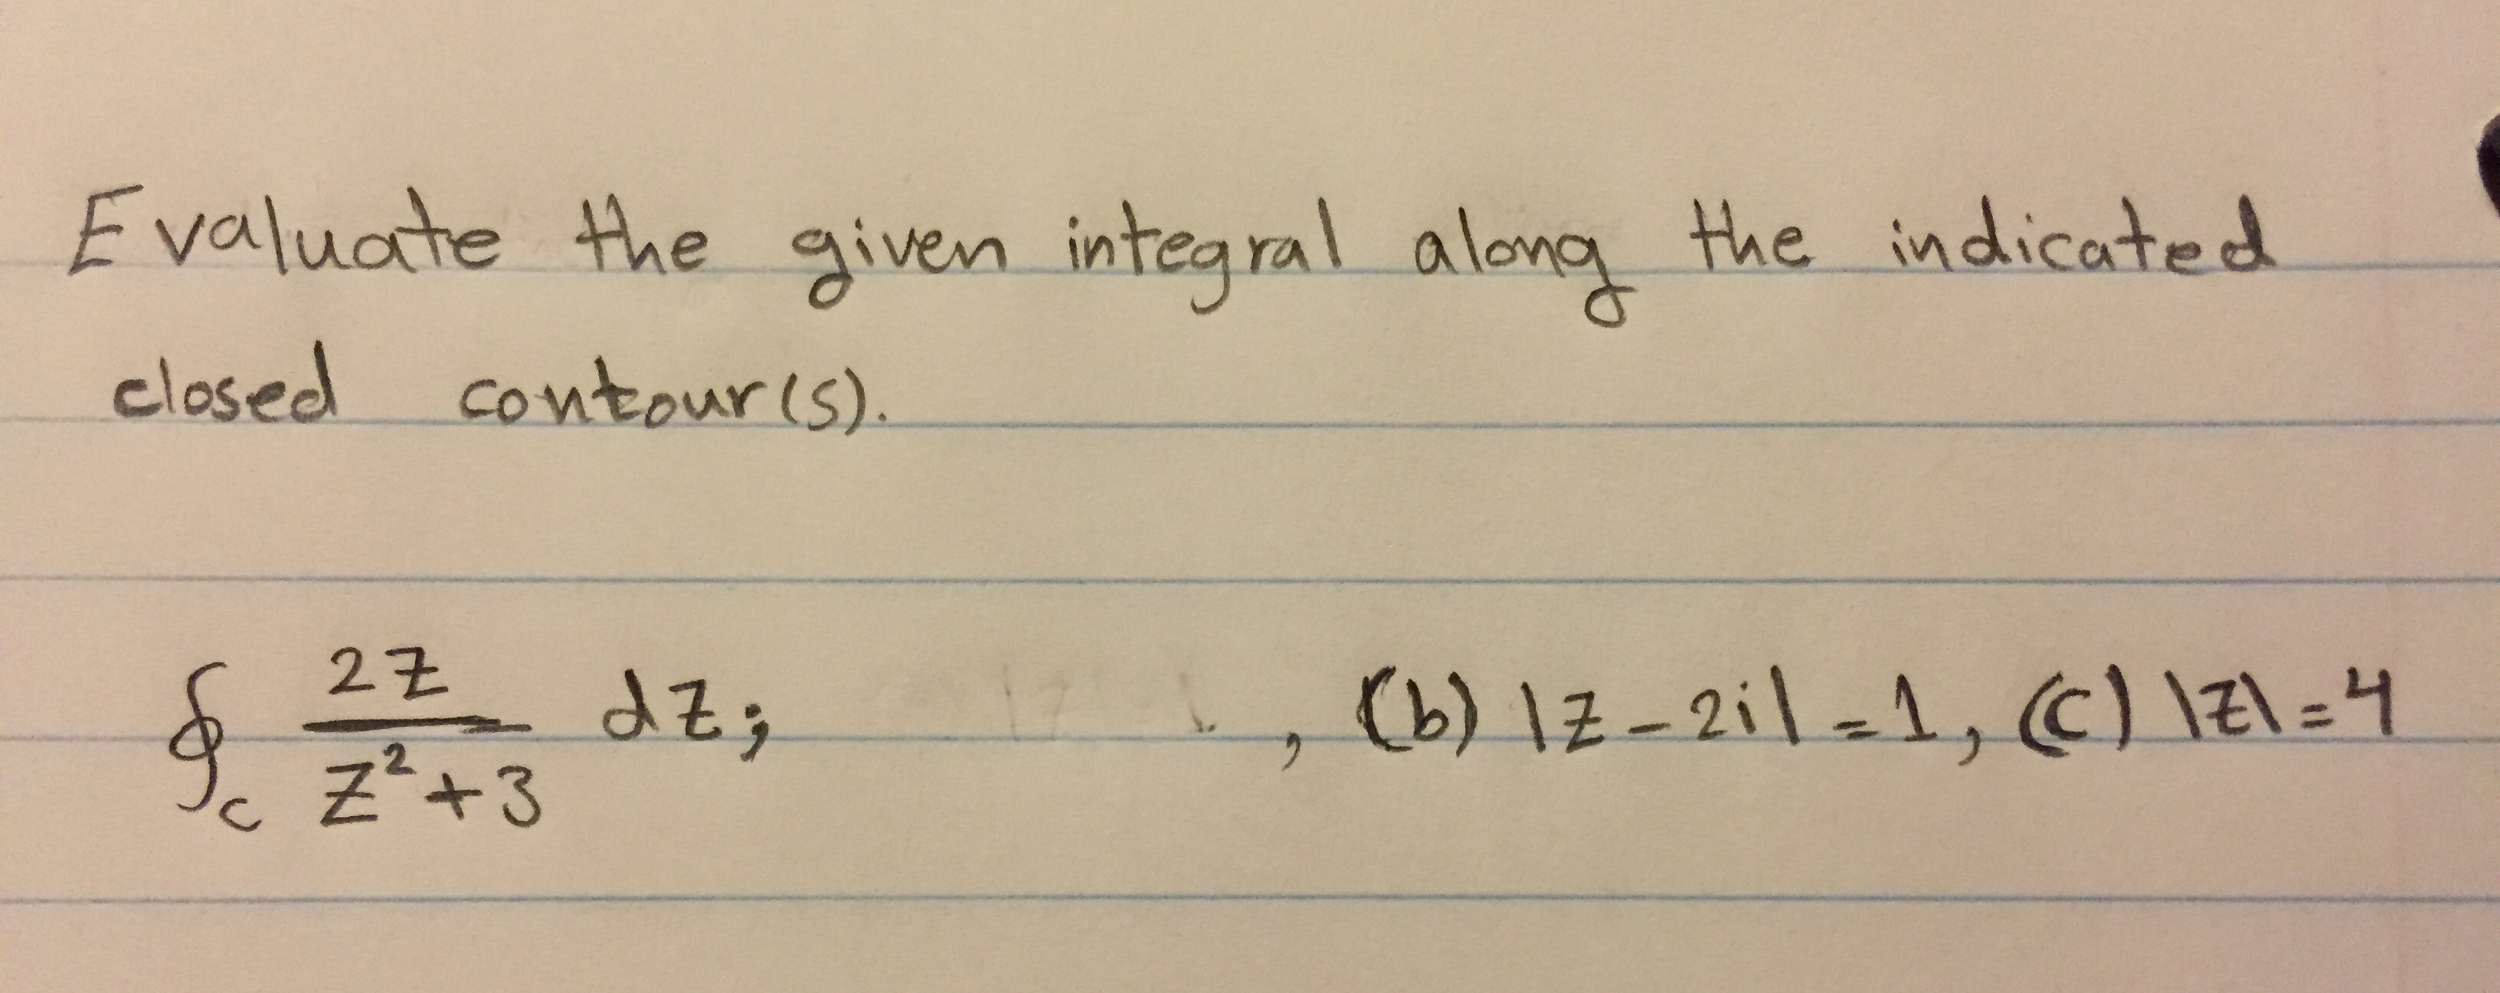 Evaluate the given integral along the indicated
closed contour(s).
∮_C 2z/(z²+3) dz; , (b) |z-2i|=1, (c) |z|=4